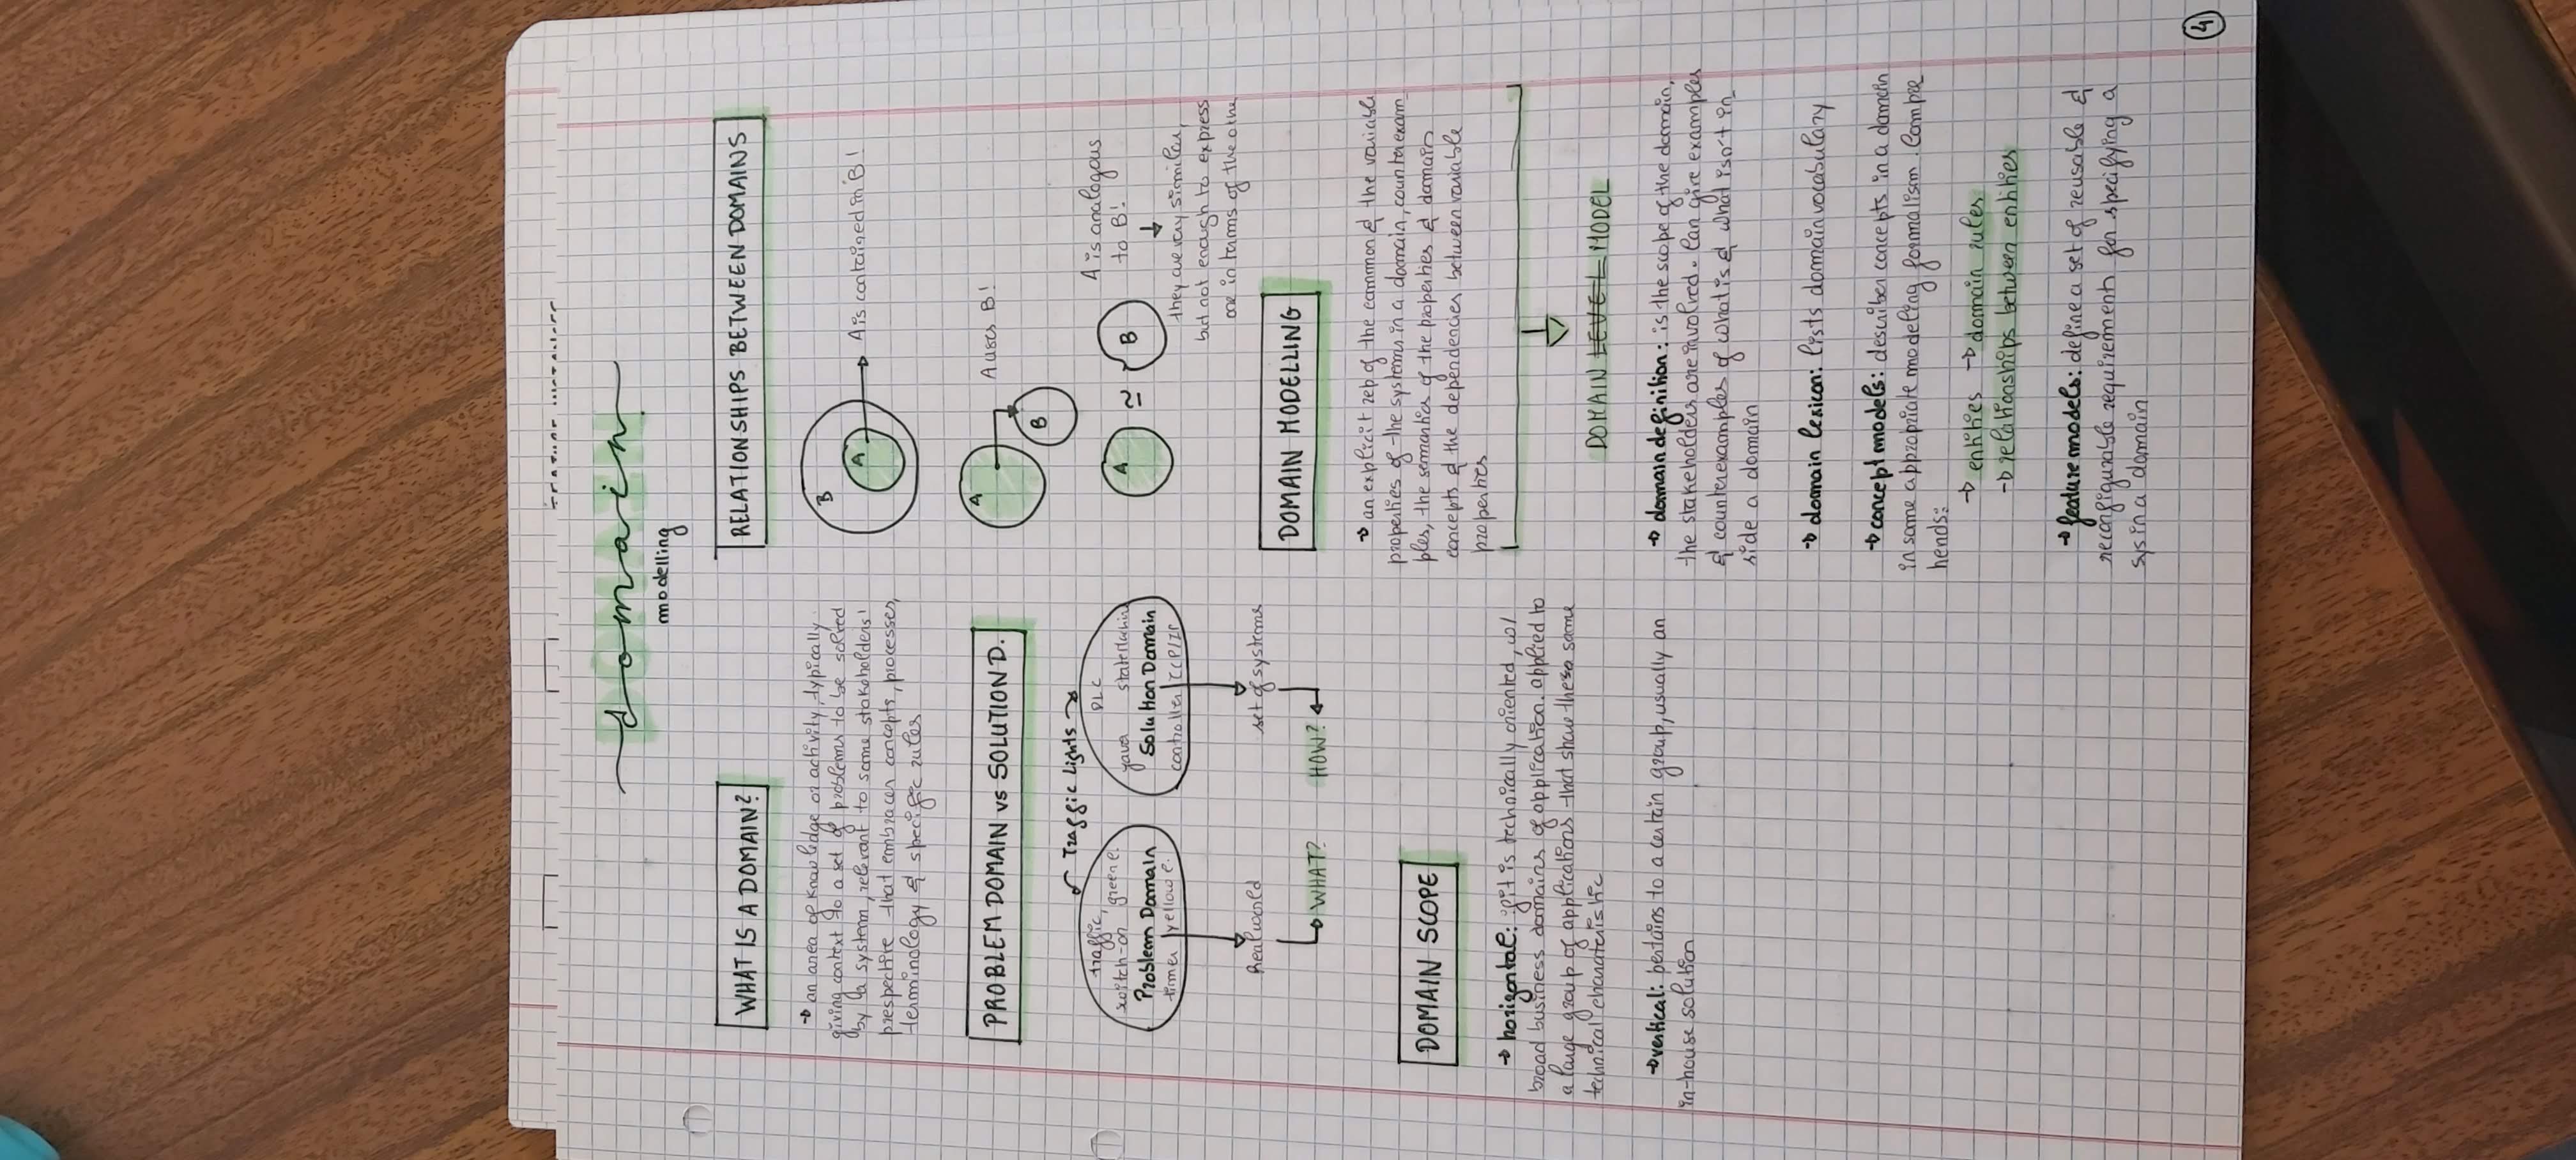 domain
modelling
WHAT IS A DOMAIN?
→ an area of knowledge or activity, typically
giving context to a set of problems to be solved
by a system, relevant to some stakeholders!
prespective that embraces concepts, processes,
terminology & specific rules
PROBLEM DOMAIN vs SOLUTION D.
Traffic Lights
traffic,
switch-on green e.
Problem Domain
timer yellow e.
PLC
Java
Solution Domain
controller TCP/IP
Real world
set of systems
WHAT?
HOW?
DOMAIN SCOPE
→ horizontal: if it is technically oriented, w/
broad business domains of application. applied to
a large group of applications that share these same
technical characteristic
→ vertical: pertains to a certain group, usually an
in-house solution
RELATIONSHIPS BETWEEN DOMAINS
B
A
A is contained in B!
A
B
A uses B!
A ≃ B
A is analogous
to B!
they are very similar,
but not enough to express
one in terms of the other
DOMAIN MODELING
→ an explicit rep of the common & the variable
properties of the systems in a domain, counterexam-
ples, the semantics of the properties & domain
concepts & the dependencies between variable
properties
DOMAIN LEVEL MODEL
→ domain definition: is the scope of the domain,
the stakeholders are involved. Can give examples
& counterexamples of what is & what isn't in-
side a domain
→ domain lexicon: lists domain vocabulary
→ concept models: describes concepts in a domain
in some appropriate modeling formalism. Compre
hends:
→ entities → domain rules
→ relationships between entities
→ feature models: define a set of reusable &
reconfigurable requirements for specifying a
sys in a domain
4